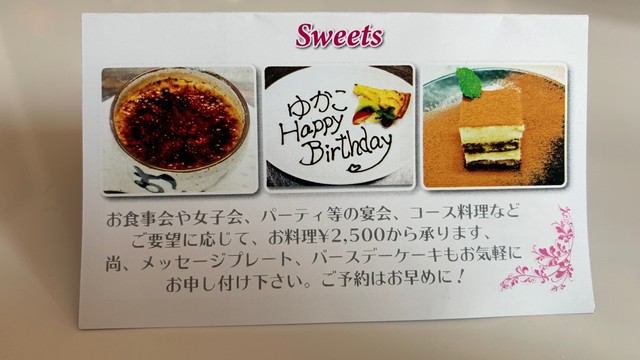 Sweets
ゆかこ
Happy
Birthday
お食事会や女子会、パーティ等の宴会、コース料理など
ご要望に応じて、お料理¥2,500から承ります、
尚、メッセージプレート、バースデーケーキもお気軽に
お申し付け下さい。ご予約はお早めに！